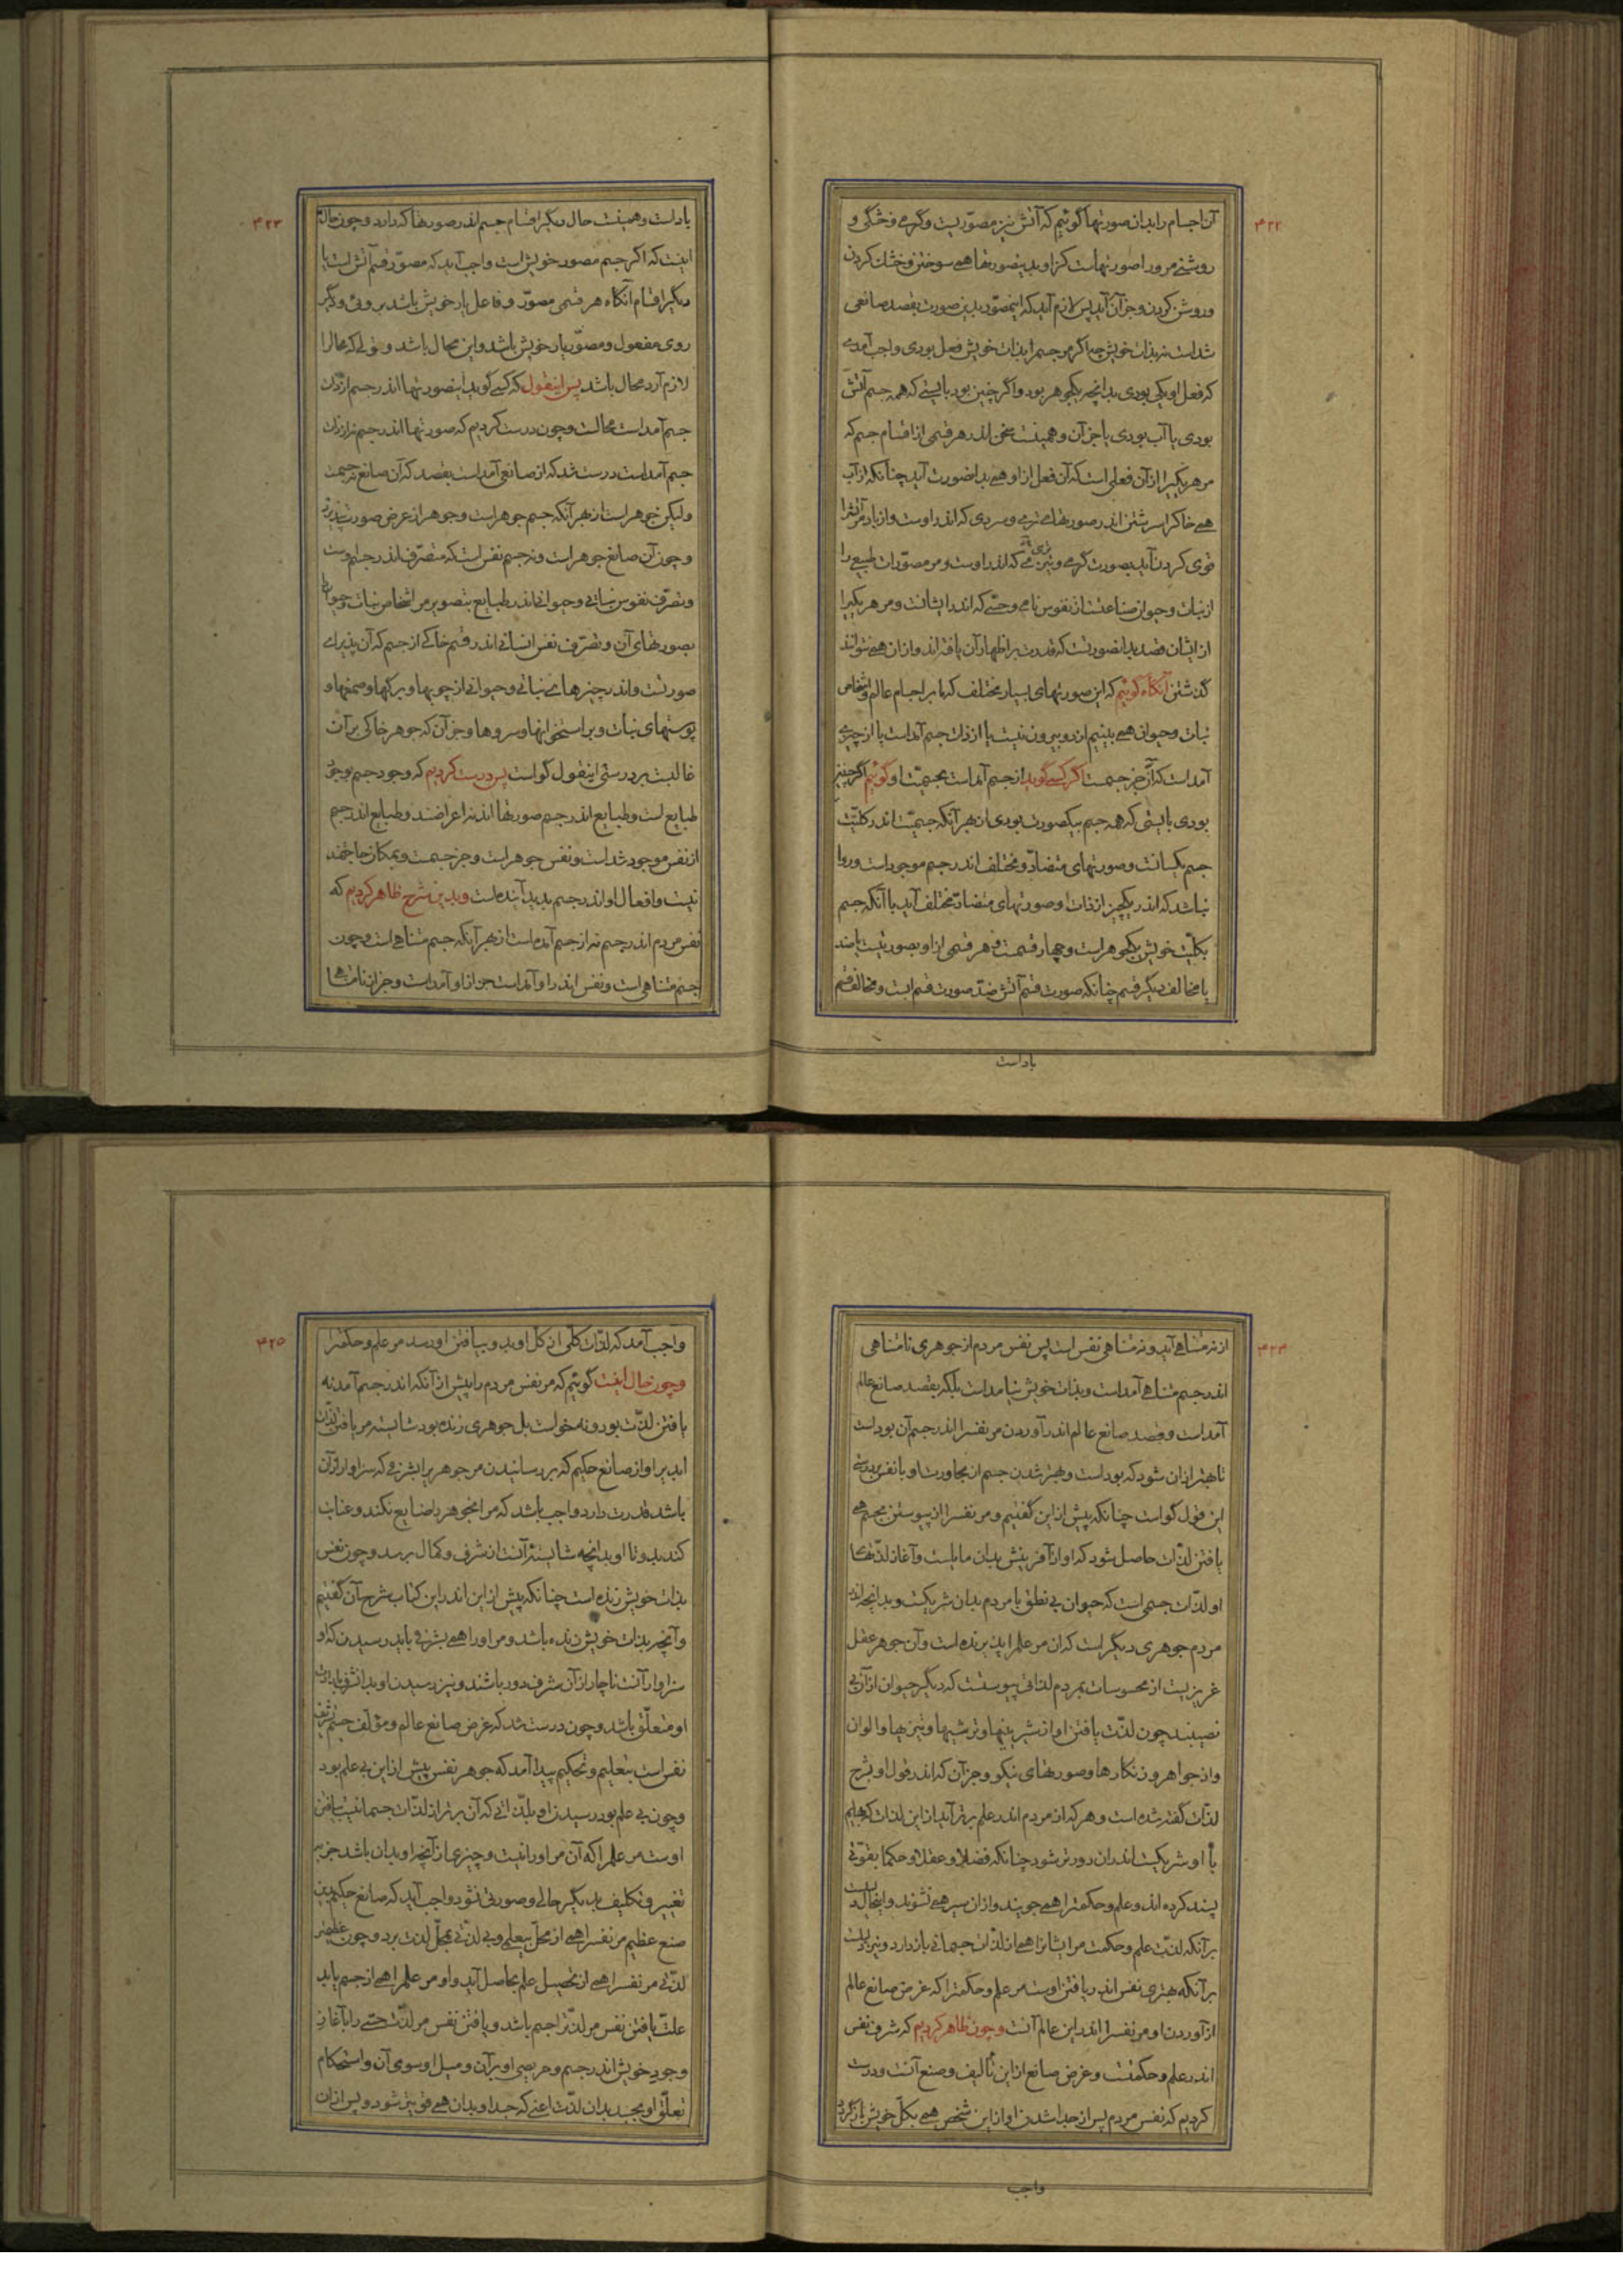 ۴۲۲
آن اجسام را بدان صورتها گوئیم که آتش نیز مصوّریست و گرمی و خشگی و
روشنی مرورا صورتهاست کزاو بدینصورتها همی سوختن و خشک کردن
و روشن کردن و جز آن آید پس لازم آید که اینمصوّر بدین صورت بقصد صانعی
شداست نه بذات خویش چه اگر مر جسم را بذات خویش فعل بودی واجب آمدی
که فعل او یکی بودی بدانچه یکجوهر بود و اگر چنین بود بایستی که همه جسم آتش
بودی یا آب بودی یا جز آن و همینست سخن اندر هر قسمی از اقسام جسم که
مر هر یکیرا از آن فعلی است که آن فعل از او همی بدانصورت آید چنانکه از آب
همی خاکرا سرشتن اندر صورتهای نرمی و سردی که اندر اوست و از باد مر آتشرا
قوی کردن آید بصورت گرمی و نرمی که اندر اوست و مر مصوّرات طبیعی را
از نبات و حیوان صناعتست از نفوس نامی و حسّی که اندر ایشانست و مر هر یکیرا
از ایشان قصد بدانصورتست که قدرت بر اظهار آن یافته اند و ازان همی نتوانند
گذشتن آنگاه گوئیم که این صورتهای بسیار مختلف که ما بر اجسام عالم و اشخاص
نبات و حیوان همی بینیم از دو بیرون نیست یا از ذات جسم آمداست یا از چیزی
آمداست که آن جز جسمست اگر کسی گوید از جسم آمداست بجسمیّت او گوئیم اگر چنین
بودی بایستی که همه جسم بیکصورت بودی از بهر آنکه جسمیّت اندر کلیّت
جسم یکسانست و صورتهای متضادّ و مختلف اندر جسم موجود است و روا
نباشد که اندر یکچیز از ذات او صورتهای متضادّ مختلف آید با آنکه جسم
بکلیّت خویش یکجوهر است و چهار قسمست و هر قسمی از او بصورتیست یا ضد
یا مخالف دیگر قسم چنانکه صورت قسم آتش ضدّ صورت قسم آبست و مخالف قسم
باداست
۴۲۳
باداست و همینست حال دیگر اقسام جسم اندر صورتها که دارد و چون حال
اینست که اگر جسم مصور خویش است واجب آید که مصوّر قسم آتش است یا
دیگر اقسام آنگاه هر قسمی مصوّر و فاعل یار خویش باشد بروئی و دیگر
روی مفعول و مصوّر یار خویش باشد و این محال باشد و قولی که محالرا
لازم آرد محال باشد پس اینقول که کسی گوید اینصورتها اندر جسم از ذات
جسم آمداست محالست و چون درست کردیم که صورتها اندر جسم نه از ذات
جسم آمداست درست شد که از صانعی آمداست بقصد که آن صانع نه جسمست
ولیکن جوهر است از بهر آنکه جسم جوهر است و جوهر از عرض صورت نپذیرد
و چون آن صانع جوهر است و نه جسم نفس است که متصرّف اندر جسم اوست
و تصرّف نفوس نباتی و حیوانی اندر طبایع بتصویر مر اشخاص نبات و حیوان
بصورتهای آن و تصرّف نفس انسانی اندر قسم خاکی از جسم که آن پذیرای
صورتست و اندر چیزهای نباتی و حیوانی از چوبها و برگها و صمغها و
پوستهای نبات و بر استخوانها و سروها و جز آن که جوهر خاکی بر آن
غالبست بر درستی اینقول گواست پس درست کردیم که وجود جسم بوجود
طبایع است و طبایع اندر جسم صورتها اند نه اعراضند و طبایع اندر جسم
از نفس موجود شداست و نفس جوهر است و جز جسمست و بمکان حاجتمند
نیست و افعال او اندر جسم پدید آینده است و بدین شرح ظاهر کردیم که
نفس مردم اندر جسم نه از جسم آمده است از بهر آنکه جسم متناهی است و چون
جسم متناهی است و نفس اندر او آمداست جز از او آمداست و جز از نامتناهی
از نه متناهی آید و نه متناهی نفس است پس نفس مردم از جوهری نامتناهی
اندر جسم متناهی آمداست و بذات خویش نیامداست بلکه بقصد صانع عالم
آمداست و قصد صانع عالم اندر آوردن مر نفس را اندر جسم آن بوداست
تا بهتر ازان شود که بوداست و بهتر شدن جسم از مجاورت او با نفس بر درستی
این قول گواست چنانکه پیش از این گفتیم و مر نفس را از پیوستن بجسم همی
یافتن لذّات حاصل شود که او از آفرینش بدان مایلست و آغاز لذّتهای
او لذّات جسمی است که حیوان بی نطق با مردم بدان شریکست و بدانچه اندر
مردم جوهری دیگر است که ان مر علم را پذیرنده است و آن جوهر عقل
غریزیست از محسوسات بمردم لذّاتی پیوستست که دیگر حیوان از آن بی
نصیبند چون لذّت یافتن او از شیرینیها و ترشیها و تیزیها و الوان
و از جواهر و زنگارها و صورتهای نیکو و جز آن که اندر قول او بشرح
لذّات گفته شده است و هر که از مردم اندر علم برتر آید از این لذّات که بهایم
با او شریکست اندران دورتر شود چنانکه فضلا و عقلا و حکما بقوتی
پسند کرده اند و علم و حکمترا همی جویند و ازان سیر همی نشوند و اینحال دلیلست
بر آنکه لذّت علم و حکمت مر ایشانرا همی از لذّات جسمانی باز دارد و نیز دلیلست
بر آنکه بهتری نفس اندر یافتن اوست مر علم و حکمترا که غرض صانع عالم
از آوردن او مر نفس را اندر این عالم آنست و چون ظاهر کردیم که شرف نفس
اندر علم و حکمتست و غرض صانع از این تألیف و صنع آنست و درست
کردیم که نفس مردم پس از جدا شدن او از این شخص همی بکلّ خویش باز گردد
واجب
۴۲۵
واجب آمد که لذّات کلّی از کلّ او بدو بیافتن او رسد مر علم و حکمترا
و چون حال اینست گوئیم که مر نفس مردم را پیش از آنکه اندر جسم آمد نه
یافتن لذّت بود و نه خواست بل جوهری زنده بود شایسته مر یافتن لذّت
ابدیرا و از صانع حکیم که بر رسانیدن مر جوهریرا بشرفی که سزاوار آن
باشد قدرت دارد واجب باشد که مر انجوهر را ضایع نکند و عنایت
کند بدو تا او بدانچه شایستهٔ آنست از شرف و کمال برسد و چون نفس
بذات خویش زنده است چنانکه پیش از این اندر این کتاب شرح آن گفتیم
و آنچه بذات خویش زنده باشد و مر او را همی بشرفی باید رسیدن که او
سزاوار آنست ناچار از آن شرف دور باشند و نیز رسیدن او بدانشرف بارادت
او متعلّق باشد و چون درست شد که غرض صانع عالم و مؤلّف جسم شرف
نفس است بتعلیم و تحکیم پیدا آمد که جوهر نفس پیش از این بی علم بود
و چون بی علم بود رسیدن او بلذّاتی که آن برتر از لذّات جسمانیست بیافتن
اوست مر علم را که آن مر او را نیست و چیزی از آنچه او بدان باشد جز بر
تغییر و تکلیف بدیگر حالی و صورتی نشود واجب آید که صانع حکیم بدین
صنع عظیم مر نفس را همی از محلّ بیعلمی و بی لذّتی بمحلّ لذّت برد و چون عظیمتر
لذّتی مر نفس را همی از تحصیل علم بحاصل آید و او مر علم را همی از جسم یابد
علّت یافتن نفس مر لذّترا جسم باشد و یافتن نفس مر لذّت حسّی را بآغاز
وجود خویش اندر جسم و حریصی او بر آن و میل او سوی آن و استحکام
تعلّق او بجسد بدان لذّت اعنی که جسد او بدان همی قوی تر شود و پس از ان